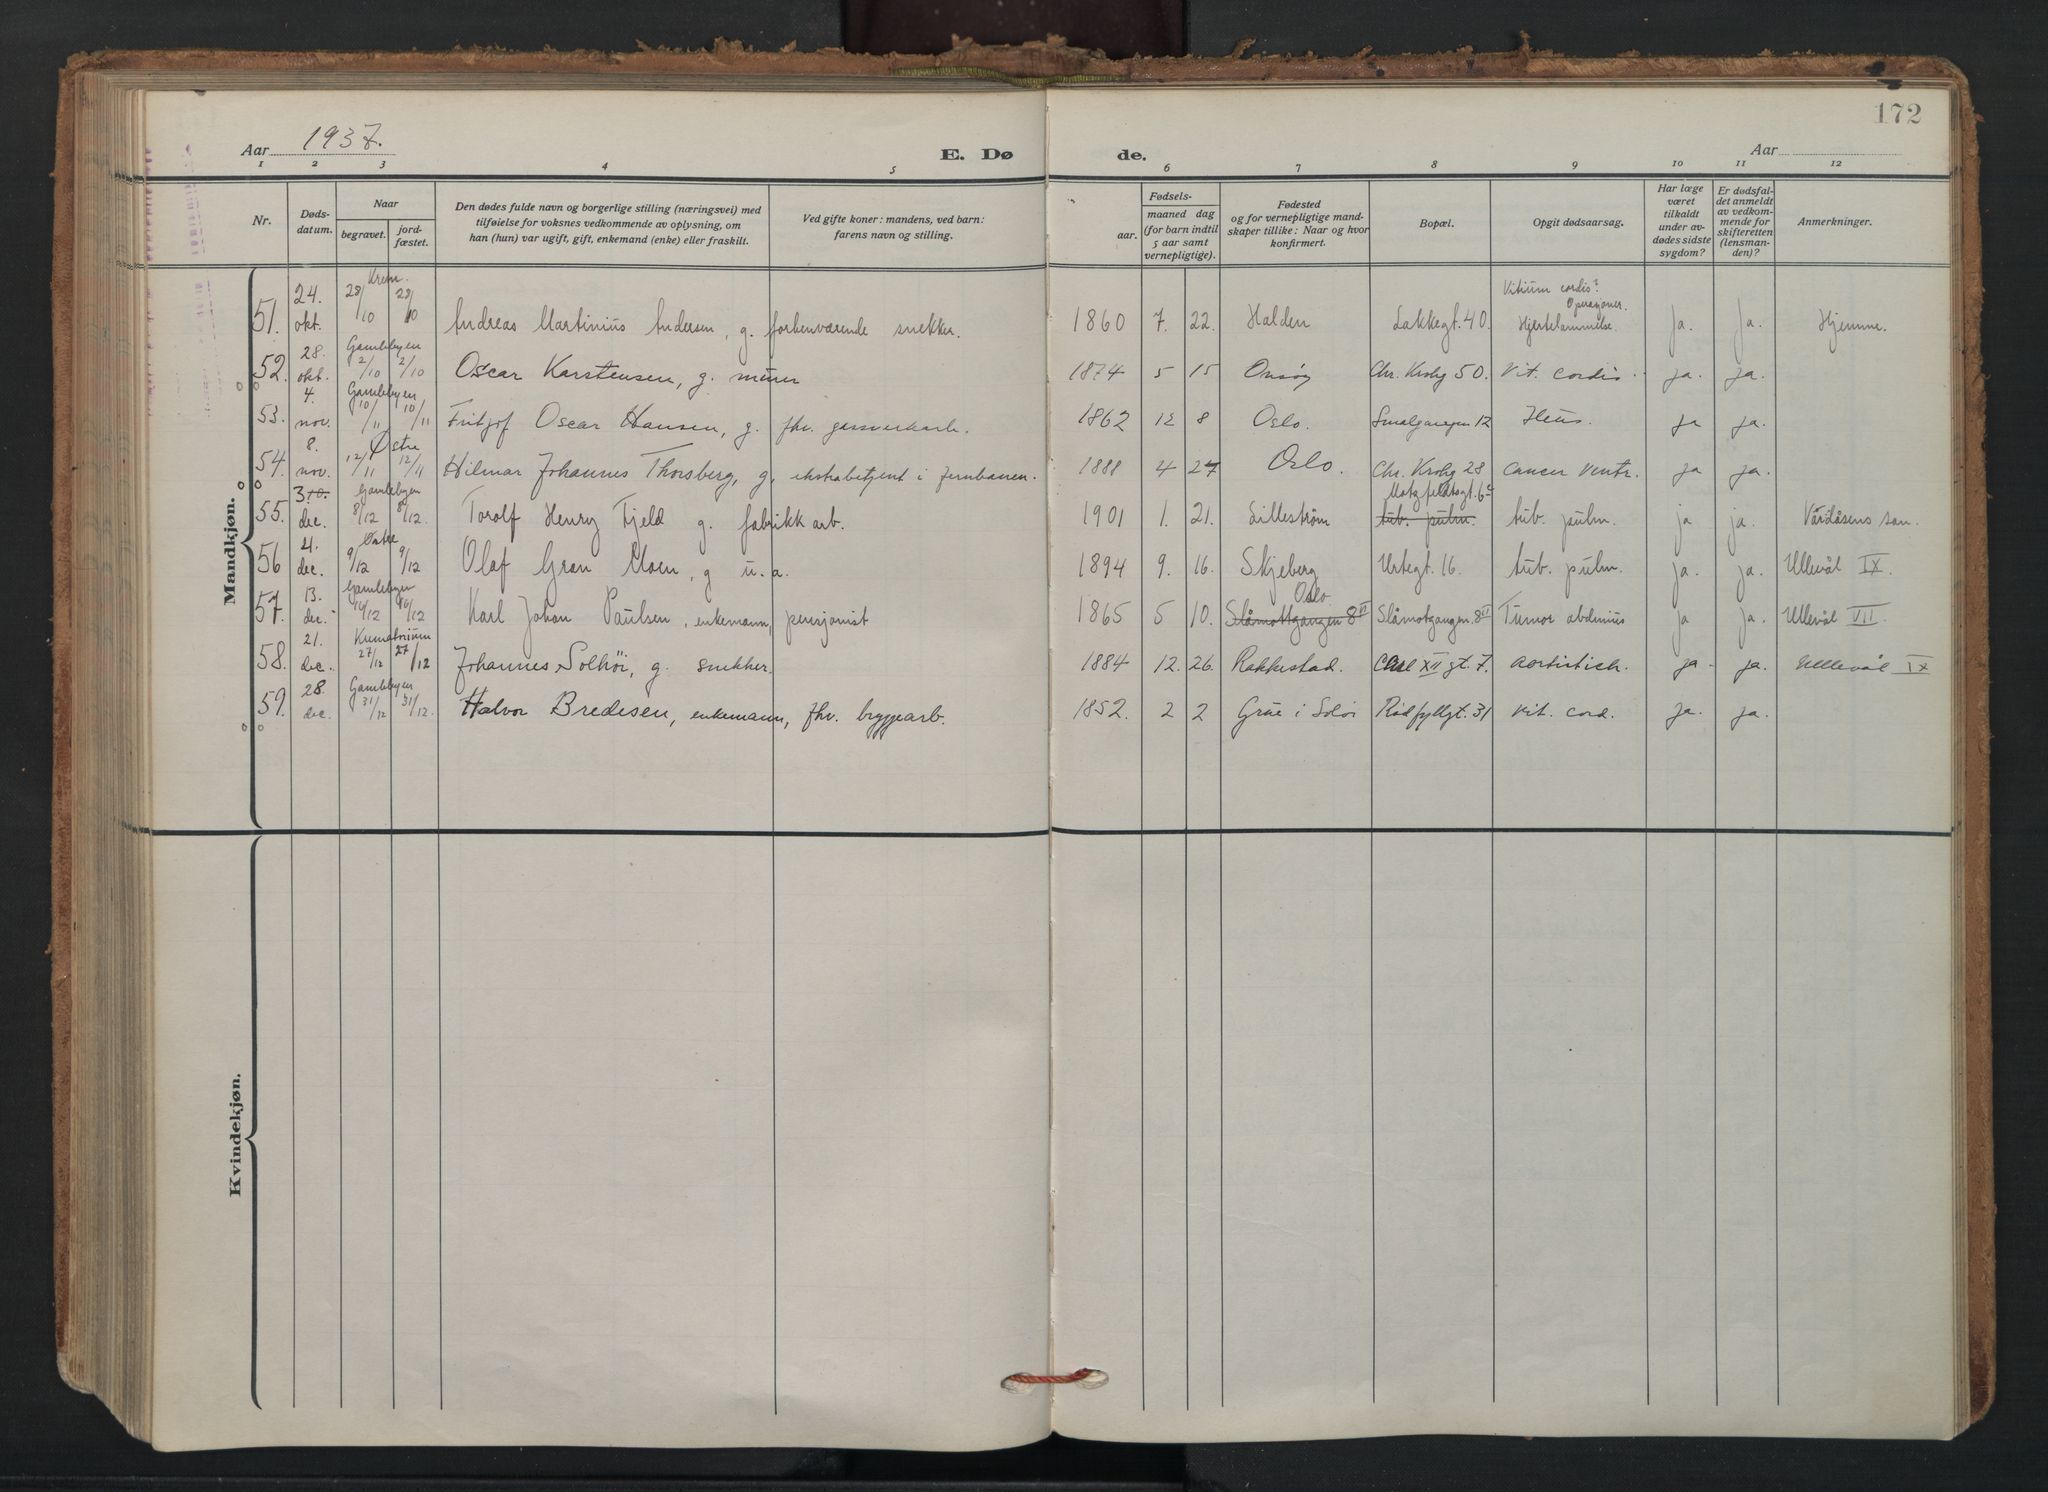 172
Aar 1937.
E. Døde.
Aar
1 2 3 4 5 6 7 8 9 10 11 12
Nr. Dødsdatum. Naar begravet. jordfæstet. Den dødes fulde navn og borgerlige stilling (næringsvei) med tilføielse for voksnes vedkommende av oplysning, om han (hun) var ugift, gift, enkemand (enke) eller fraskilt. Ved gifte koner: mandens, ved barn: farens navn og stilling. Fødsels- aar. maaned dag (for barn indtil 5 aar samt vernepligtige). Fødested og for vernepligtige mandskaper tillike: Naar og hvor konfirmert. Bopæl. Opgit dødsaarsag. Har læge været tilkaldt under avdødes sidste sygdom? Er dødsfaldet anmeldt av vedkommende for skifteretten (lensmanden)? Anmerkninger.
Mandkjøn.
51. 24. okt. Krem. 28/10 28/10 Andreas Martinius Andersen, g. forhenværende snekker. 1860 7. 22. Halden Lakkegt. 40. Vitium cordis? Operasjoner. Hjertelammelse. Ja. Ja. Hjemme.
52. 28. okt. Gamlebyen 2/10 2/10 Oscar Karstensen, g. murer 1874 5 15 Onsøy Chr. Krohg 50. Vit. cordis. ja. ja.
53. 4. nov. Gamlebyen 10/11 10/11 Fritjof Oscar Hansen, g. fhv. gassverkarb. 1862 12 8 Oslo. Smalgangen 12 Ileus. ja ja.
54. 8. nov. Østre 12/11 12/11 Hilmar Johannes Thorsberg, g. ekstrabetjent i jernbanen. 1888 4 27 Oslo. Chr. Krohg 28 Cancer Ventr. ja ja.
55. 3 10. dec. Gamlebyen 8/12 8/12. Torolf Henry Fjeld g. fabrikk arb. 1901 1. 21. Lillestrøm Motzfeldtsgt. 6c tub. pulm. tub. pulm. ja ja. Vårdåsens san.
56 4. dec. Østre 9/12 9/12 Olaf Gran Moen, g u.a. 1894 9. 16. Skjeberg Urtegt. 16. tub. pulm. ja. ja. Ullevål IX.
57. 13. dec. Gamlebyen 16/12 16/12 Karl Johan Paulsen, enkemann, pensjonist 1865 5 10. Oslo Slåmotgangen 8 VI Slåmotgangen 8 VI Tumor abdminis ja ja. Ullevål VII.
58. 21. dec. Krematorium 27/12 27/12 Johannes Solhöi, g. snekker. 1884 12. 26. Rakkestad. Carl XII gt. 7. aortistich. ja. ja. Ullevål IX
59. 28. dec. Gamlebyen 31/12 31/12. Halvor Bredesen, enkemann, fhv. bryggearb. 1852. 2 2 Grue i Solør Rødfyllgt. 31 vit. cord. ja. ja.
Kvindekjøn.